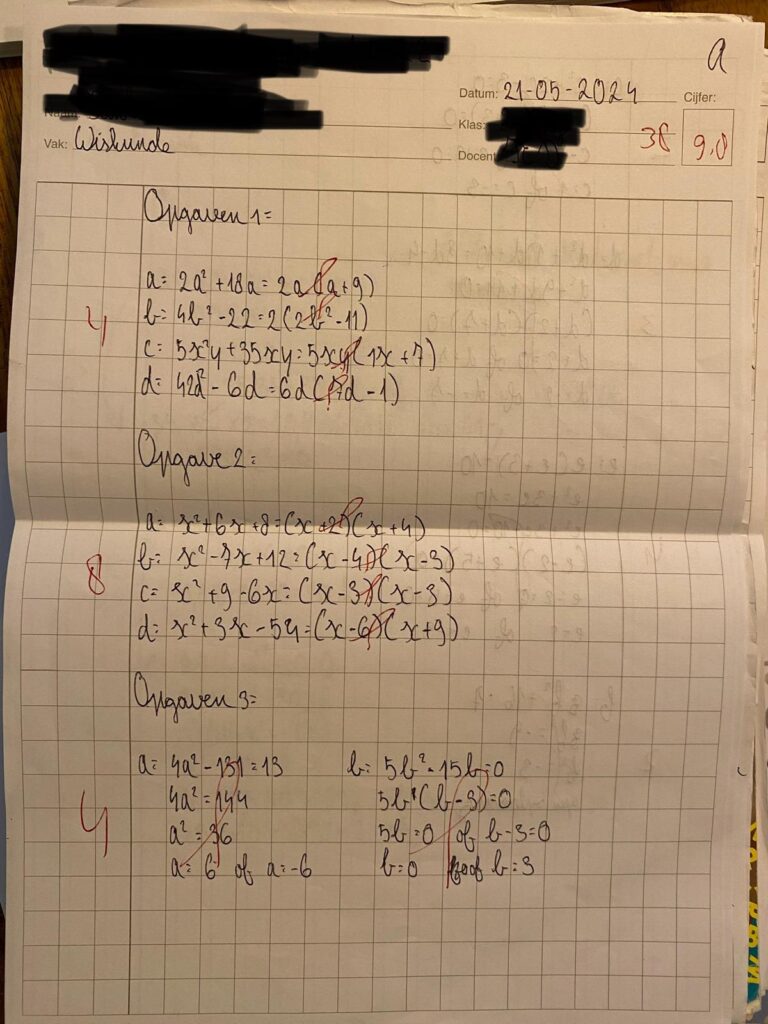 a
Datum: 21-05-2024
Cijfer:
Naam:
Klas:
38
9,0
Vak: Wiskunde
Docent
Opgaven 1=
a= 2a² + 18a = 2a(1a+9)
b= 4b² - 22 = 2(2b² - 11)
c= 5x²y + 35xy = 5xy(1x + 7)
d= 42d² - 6d = 6d(7d - 1)
4
Opgave 2=
a= x² + 6x + 8 = (x + 2)(x + 4)
b= x² - 7x + 12 = (x - 4)(x - 3)
c= x² + 9 - 6x = (x - 3)(x - 3)
d= x² + 3x - 54 = (x - 6)(x + 9)
8
Opgaven 3=
a= 4a² - 131 = 13
4a² = 144
a² = 36
a = 6 of a = -6
b= 5b² - 15b = 0
5b(b - 3) = 0
5b = 0 of b - 3 = 0
b = 0 of b = 3
4